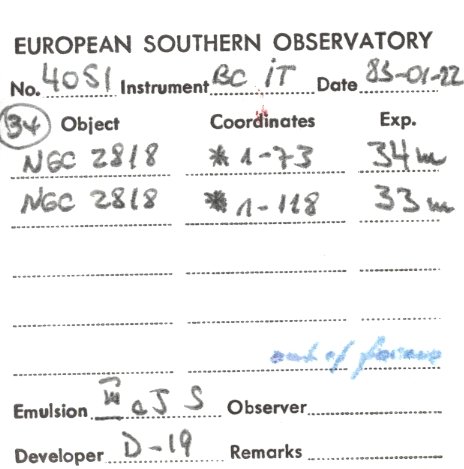 EUROPEAN SOUTHERN OBSERVATORY
No. 4051 Instrument BC iT Date 83-01-22
34 Object Coordinates Exp.
NGC 2818 * 1-73 34m
NGC 2818 * 1-118 33m
out of focus
Emulsion III a J S Observer
Developer D-19 Remarks